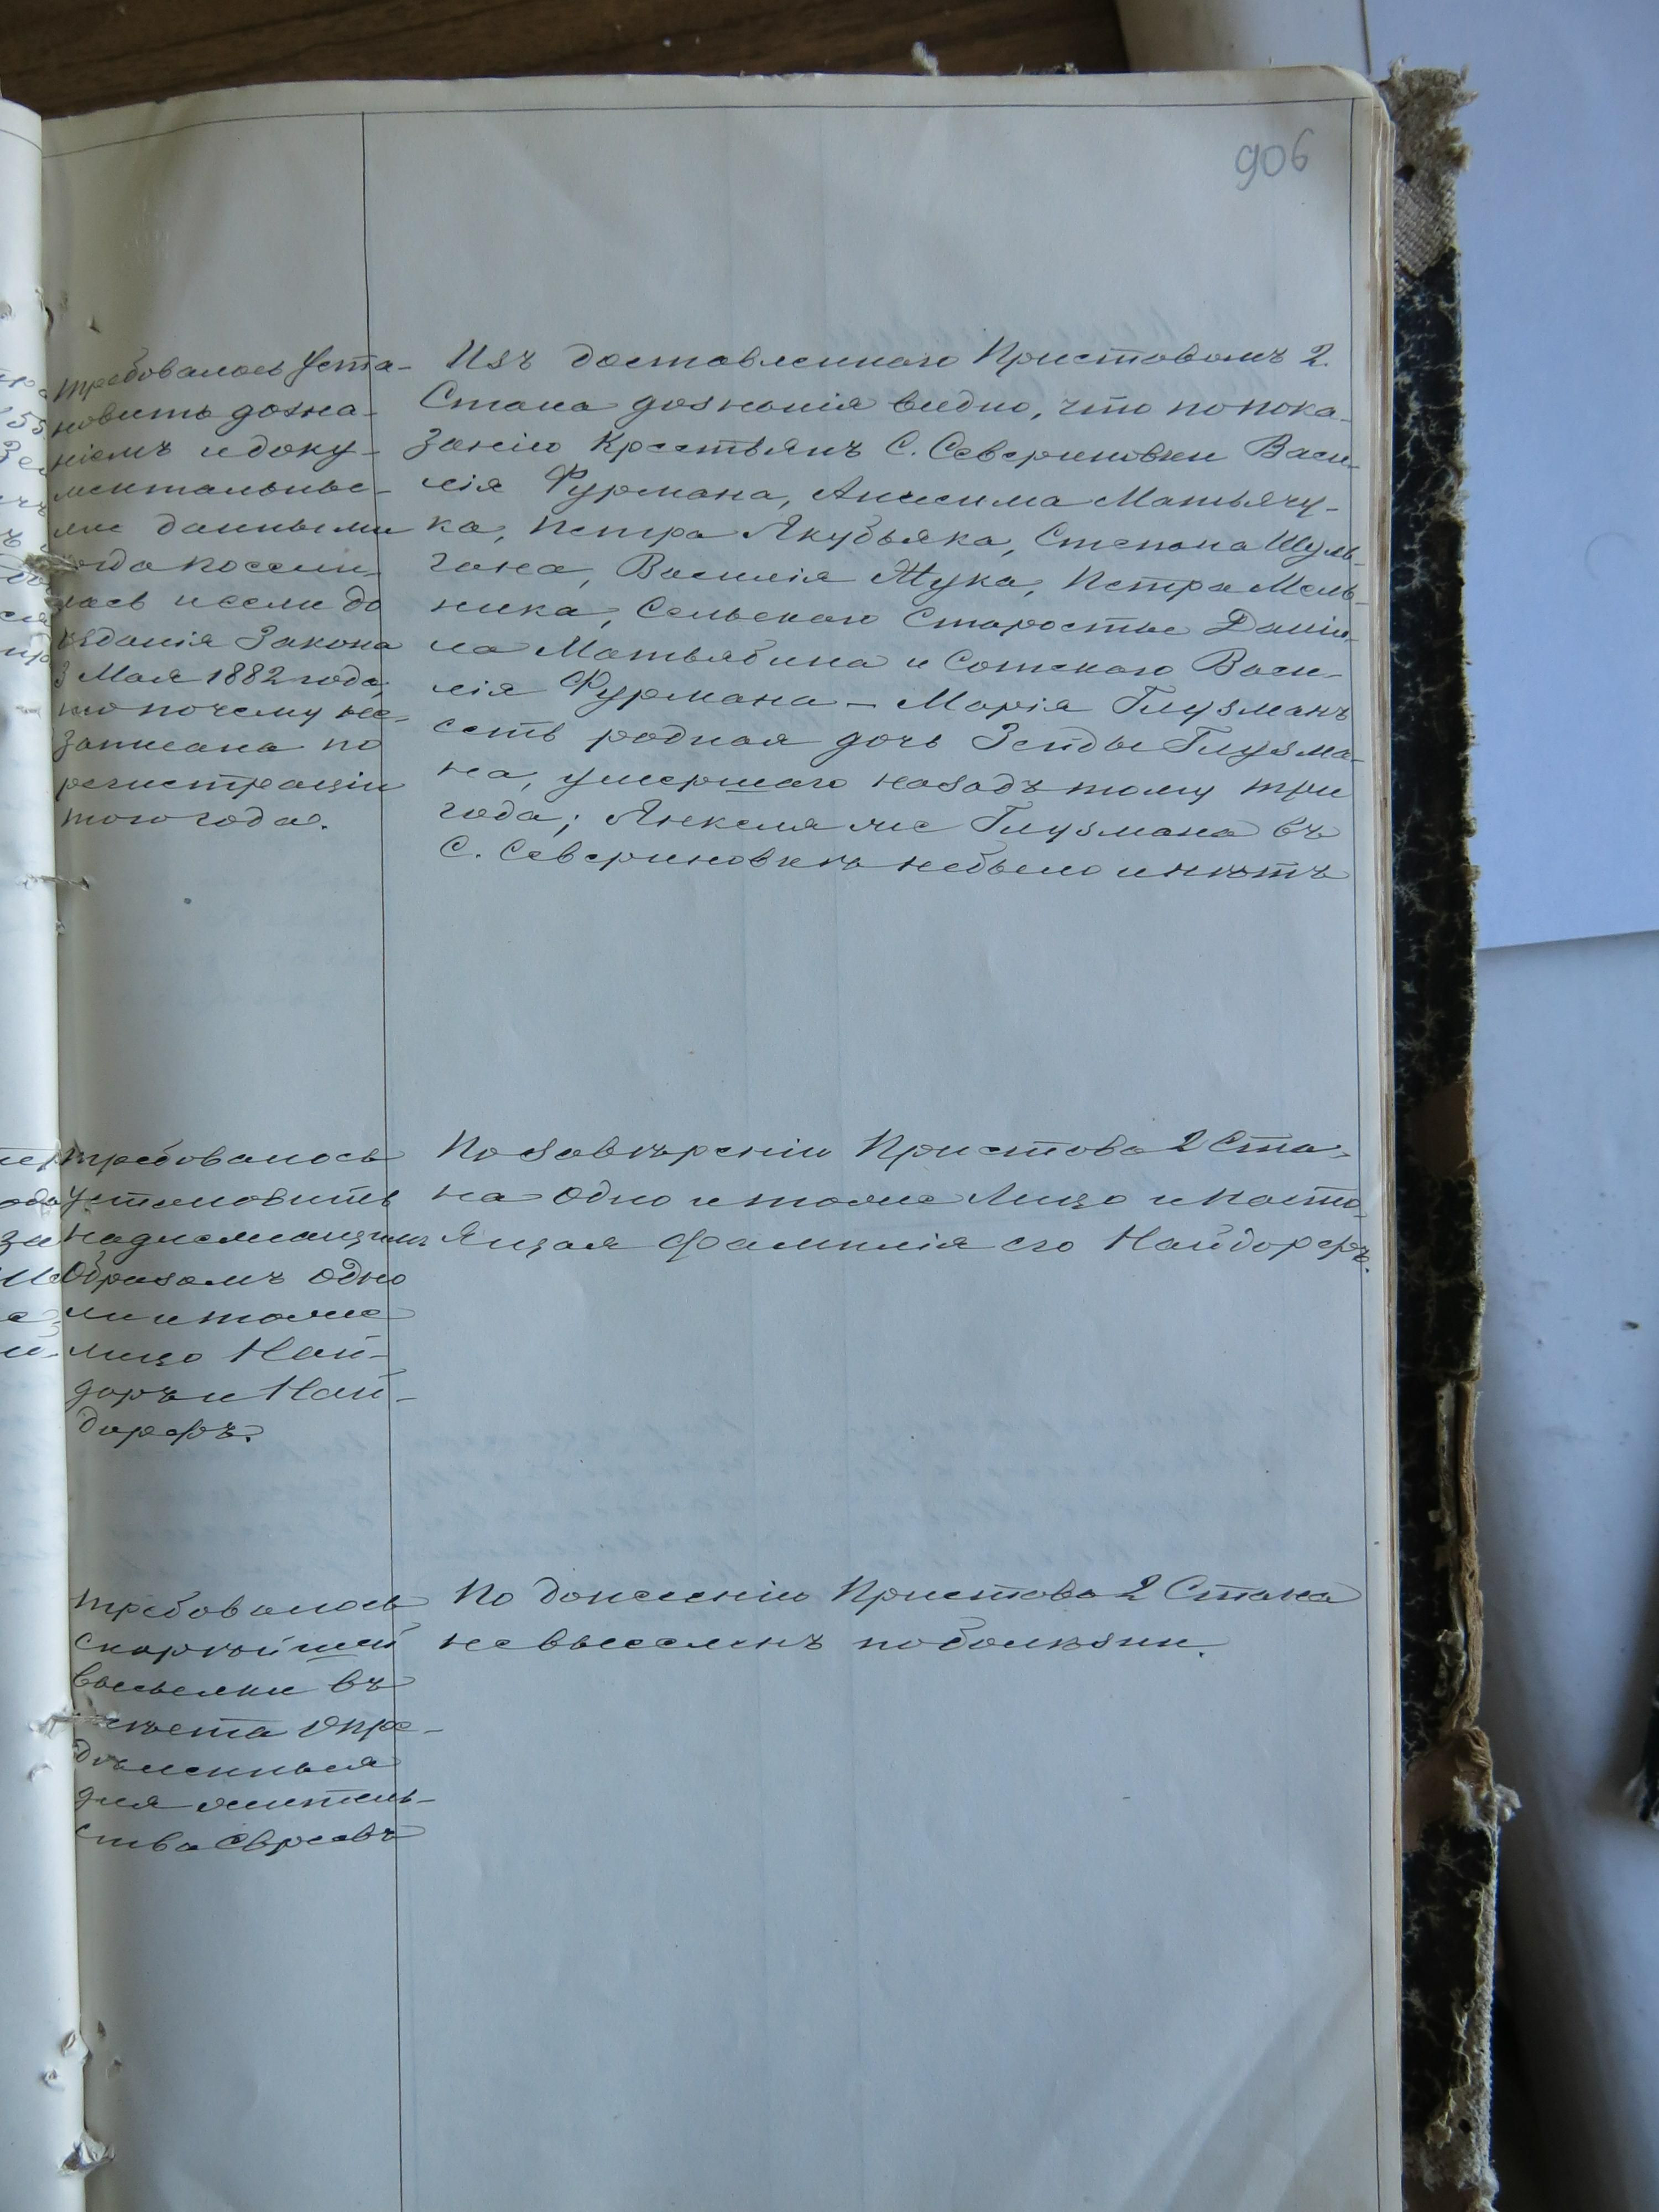 906
требовалось уста-
новить дозна-
ніемъ и доку-
ментальны-
ми данными
когда посели-
лась и если до
изданія Закона
3 Мая 1882 года,
то почему не-
записана по
регистраціи
того года.
Изъ доставленнаго Приставомъ 2
Стана дознанія видно, что по пока-
занію Крестьянъ С. Севериновки Васи-
лія Фурмана, Анисима Матьячу-
ка, Петра Якубьяка, Степана Шуль-
гана, Василія Жука, Петра Мель-
ника, Сельскаго Старосты Дани-
ла Матьябина и Сотскаго Васи-
лія Фурмана – Марія Глузманъ
есть родная дочь Зейды Глузма-
на, умершаго назадъ тому три
года; Янкеля же Глузмана въ
С. Севериновкѣ небыло и нѣтъ
требовалось
установить
надлежащимъ
Образомъ одно
ли и тоже
лицо Най-
доръ и Най-
дорфъ.
По завѣренію Пристава 2 Ста-
на одно и тоже Лицо и насто-
ящая фамилія его Найдорфъ.
требовалось
скорѣйшей
высылки въ
мѣста опре-
дѣленныя
для житель-
ства Евреевъ
По донесенію Пристава 2 Стана
не выселенъ по болѣзни.